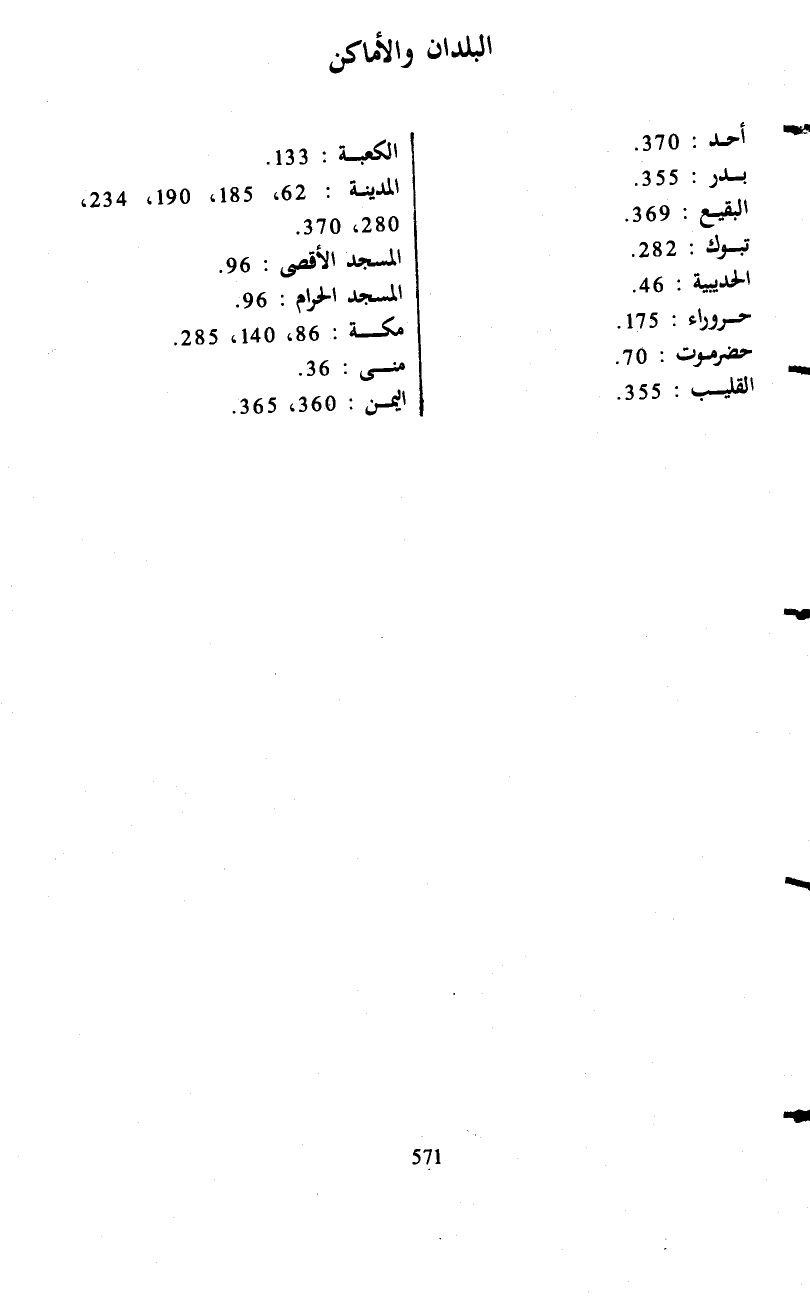 البلدان والأماكن
أحد : 370.
بدر : 355.
البقيع : 369.
تبوك : 282.
الحديبية : 46.
حروراء : 175.
حضرموت : 70.
القليب : 355.
الكعبة : 133.
المدينة : 62، 185، 190، 234،
280، 370.
المسجد الأقصى : 96.
المسجد الحرام : 96.
مكة : 86، 140، 285.
منى : 36.
اليمن : 360، 365.
571